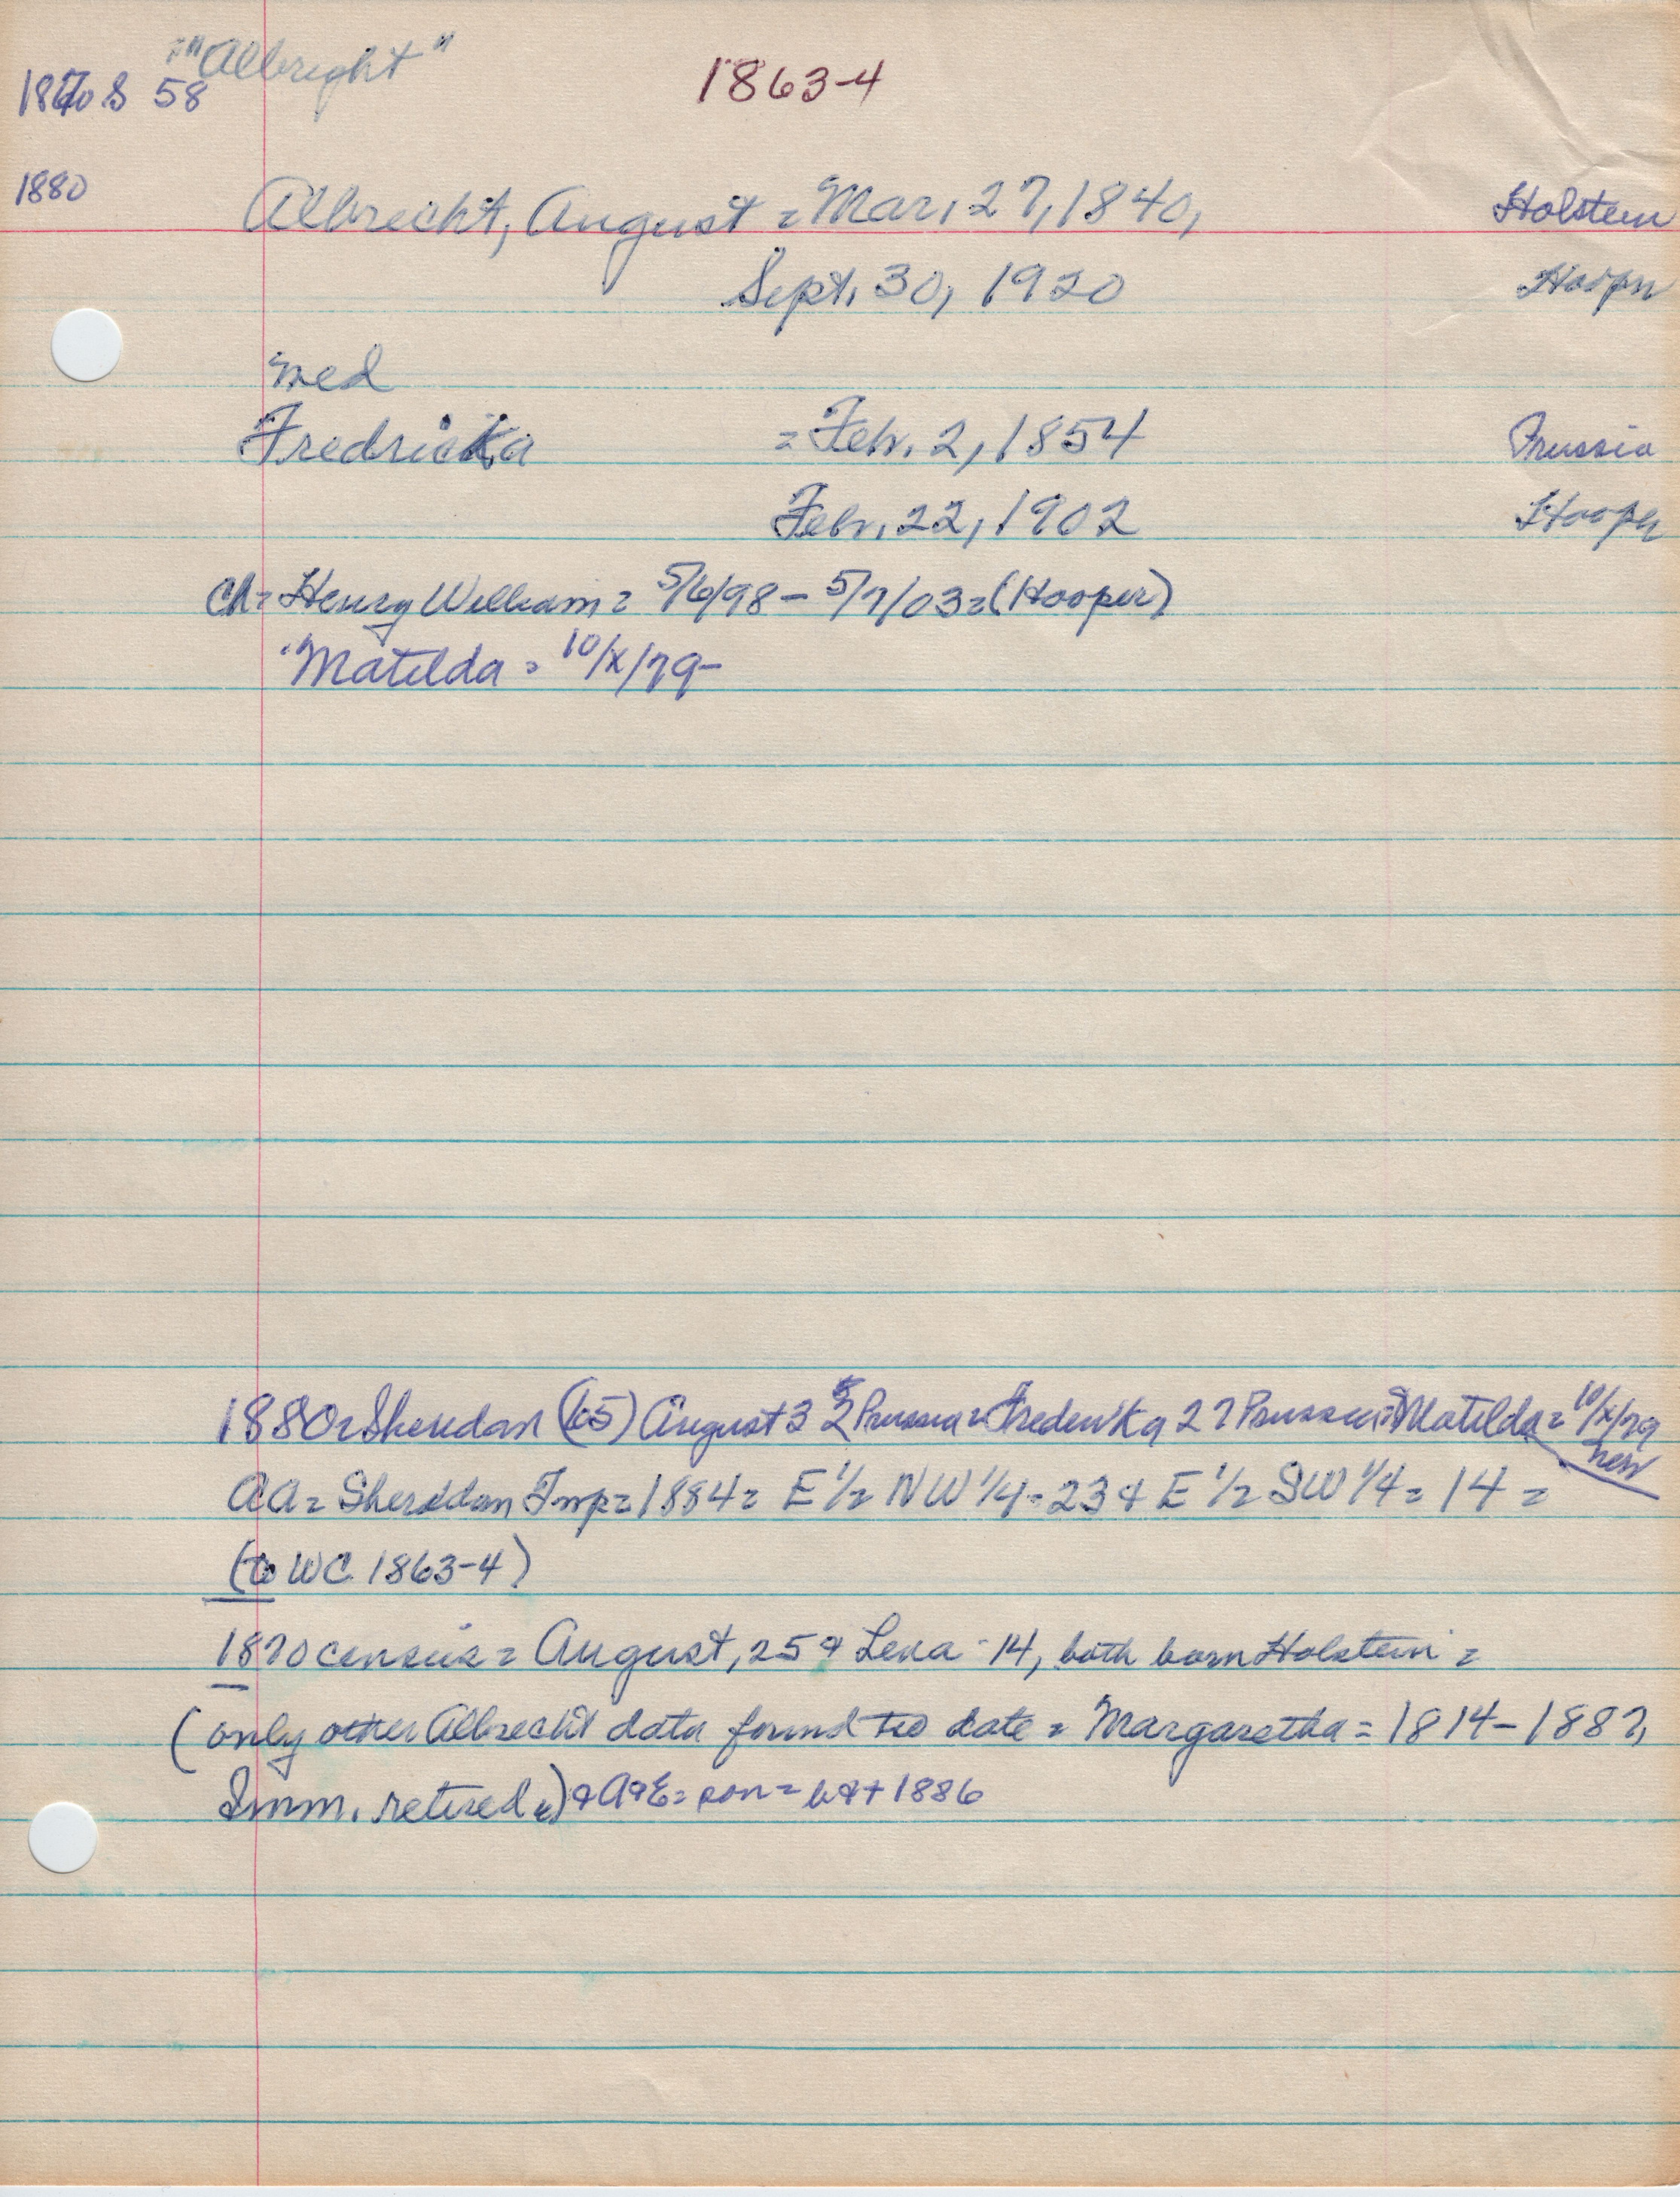 "Albright"
1870 S 58
1863-4
1880
Albrecht, August = Mar, 27, 1840, Holstein
Sept, 30, 1920 Hooper
med
Fredricka = Feb. 2, 1854 Prussia
Feb. 22, 1902 Hooper
Ch = Henry William = 5/6/98 - 5/7/03 = (Hooper)
Matilda = 10/x/79-
1880 = Sheridan (65) August 3 Prussia = Frederika 27 Prussia = Matilda = 10/x/79
new
AA = Sheridan Twp = 1884 = E 1/2 NW 1/4 - 23 & E 1/2 SW 1/4 = 14 =
(to WC 1863-4)
1870 census = August, 25 & Lena - 14, both born Holstein =
(only other Albrecht data found to date = Margaretha = 1814-1887,
Imm. retired.) & A&E = son = b&+ 1886